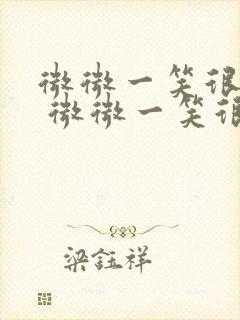 微微一笑很
微微一笑很
梁钰祥